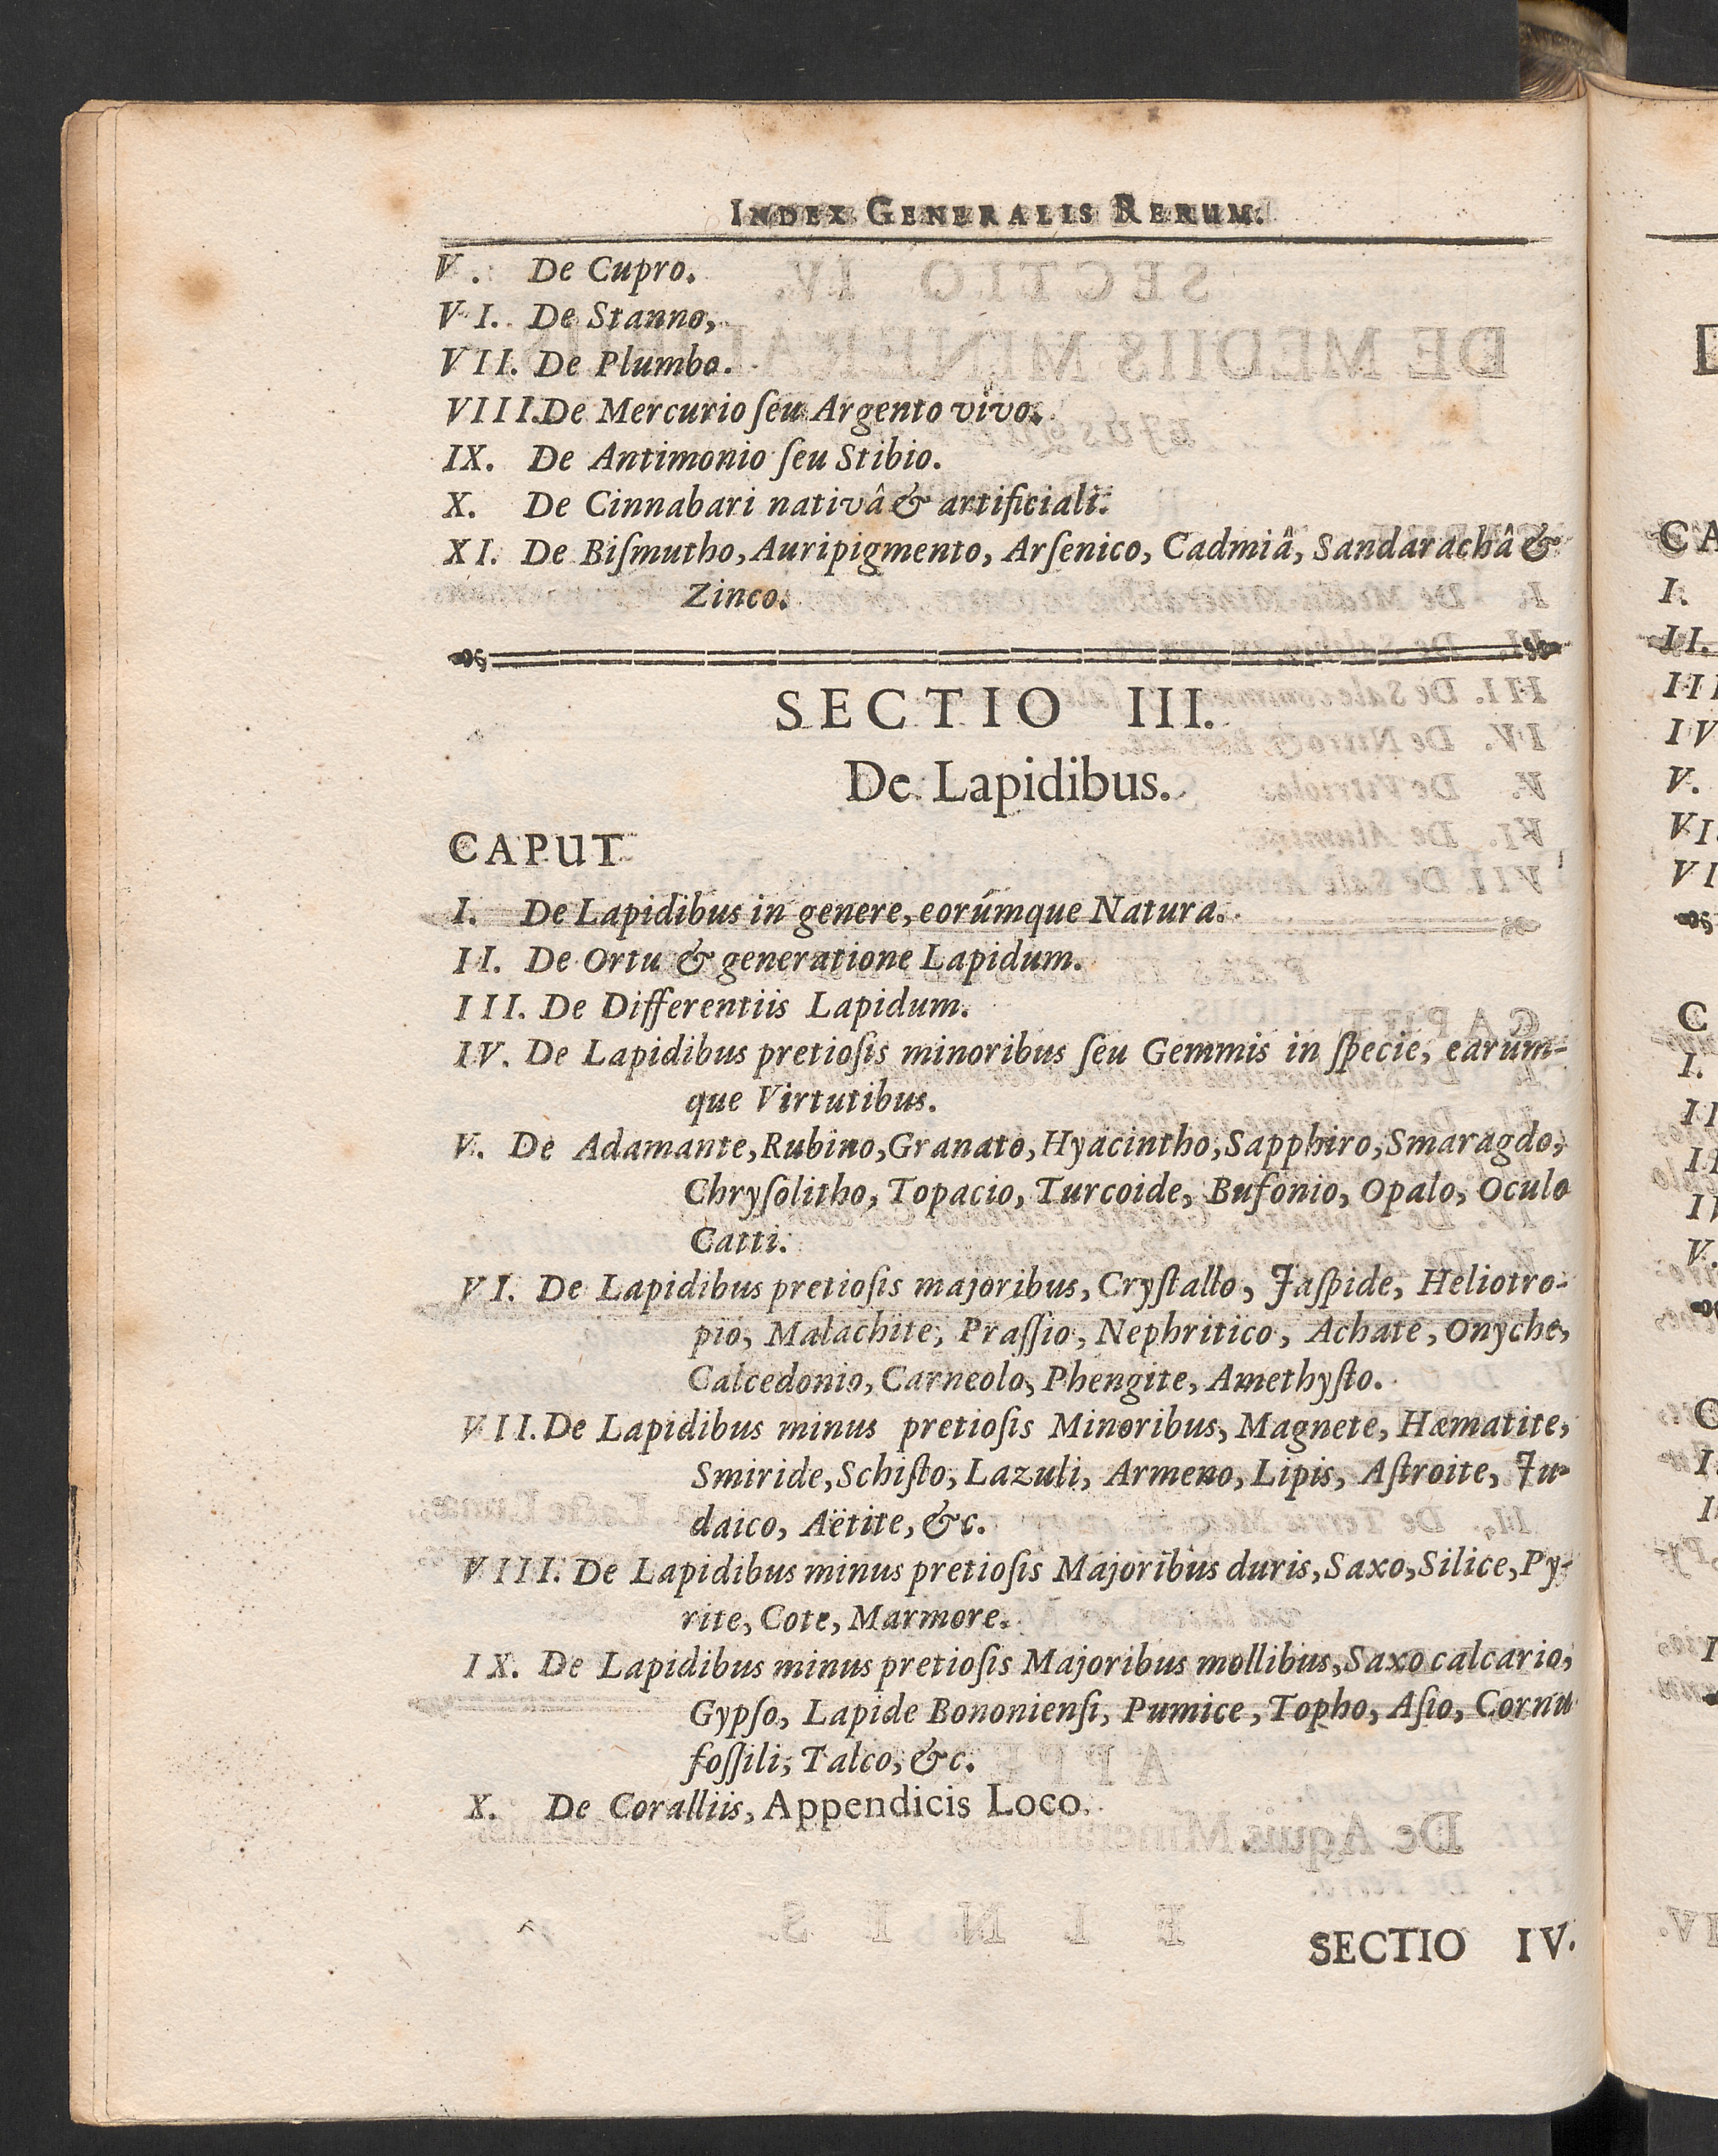 INDEX GENERALIS RERUM.
V. De Cupro.
VI. De Stanno,
VII. De Plumbo.
VIII. De Mercurio ſeu Argento vivo.
IX. De Antimonio ſeu Stibio.
X. De Cinnabari nativâ & artificiali.
XI. De Biſmutho, Auripigmento, Arſenico, Cadmiâ, Sandarachâ &
Zinco.
SECTIO III.
De Lapidibus.
CAPUT
I. De Lapidibus in genere, eorúmque Natura.
II. De Ortu & generatione Lapidum.
III. De Differentiis Lapidum.
IV. De Lapidibus pretioſis minoribus ſeu Gemmis in ſpecie, earum-
que Virtutibus.
V. De Adamante, Rubino, Granato, Hyacintho, Sapphiro, Smaragdo,
Chryſolitho, Topacio, Turcoide, Bufonio, Opalo, Oculo
Catti.
VI. De Lapidibus pretioſis majoribus, Cryſtallo, Jaſpide, Heliotro-
pio, Malachite, Praſſio, Nephritico, Achate, Onyche,
Calcedonio, Carneolo, Phengite, Amethyſto.
VII. De Lapidibus minus pretioſis Minoribus, Magnete, Hæmatite,
Smiride, Schiſto, Lazuli, Armeno, Lipis, Aſtroite, Ju-
daico, Aëtite, &c.
VIII. De Lapidibus minus pretioſis Majoribus duris, Saxo, Silice, Py-
rite, Cote, Marmore.
IX. De Lapidibus minus pretioſis Majoribus mollibus, Saxo calcario,
Gypſo, Lapide Bononienſi, Pumice, Topho, Aſio, Cornu
foſſili, Talco, &c.
X. De Coralliis, Appendicis Loco.
SECTIO IV.